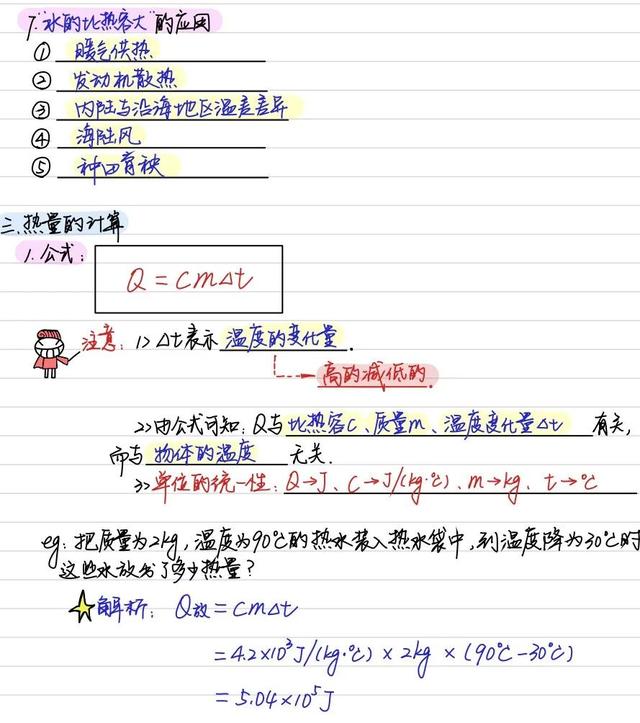 7."水的比热容大"的应用
① 暖气供热
② 发动机散热
③ 内陆与沿海地区温差差异
④ 海陆风
⑤ 种田育秧
三、热量的计算
1. 公式:
Q = cm△t
注意: 1> △t表示 温度的变化量.
高的减低的.
2> 由公式可知: Q与 比热容C、质量m、温度变化量△t 有关,
而与 物体的温度 无关.
3> 单位的统一性: Q→J、C→J/(kg·℃)、m→kg、t→℃
eg: 把质量为2kg,温度为90℃的热水装入热水袋中,到温度降为30℃时
这些水放出了多少热量?
解析: Q放 = cm△t
= 4.2×10³J/(kg·℃) × 2kg × (90℃-30℃)
= 5.04×10⁵J